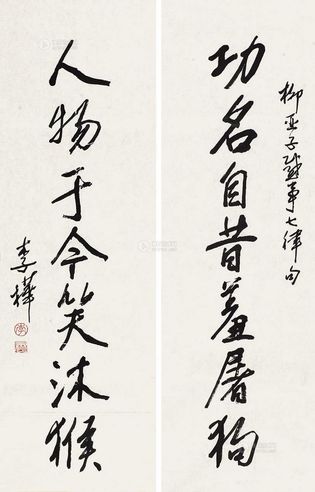 柳亚子感事七律句
功名自昔羞屠狗
人物于今笑沐猴
李桦